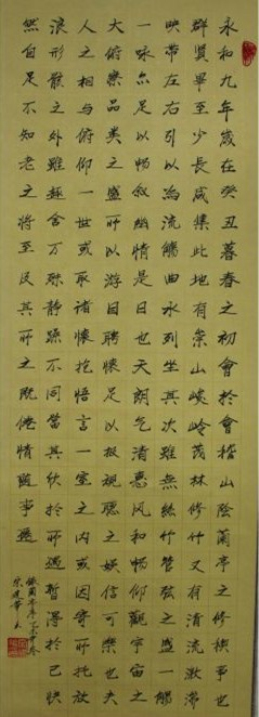 永和九年歲在癸丑暮春之初會於會稽山陰蘭亭之修稧事也
群賢畢至少長咸集此地有崇山峻嶺茂林修竹又有清流激湍
映帶左右引以為流觴曲水列坐其次雖無絲竹管弦之盛一觴
一咏亦足以暢敘幽情是日也天朗氣清惠風和暢仰觀宇宙之
大俯察品類之盛所以游目騁懷足以極視聽之娛信可樂也夫
人之相與俯仰一世或取諸懷抱悟言一室之內或因寄所托放
浪形骸之外雖趣舍万殊靜躁不同當其欣於所遇暫得於己快
然自足不知老之將至及其所之既倦情隨事遷